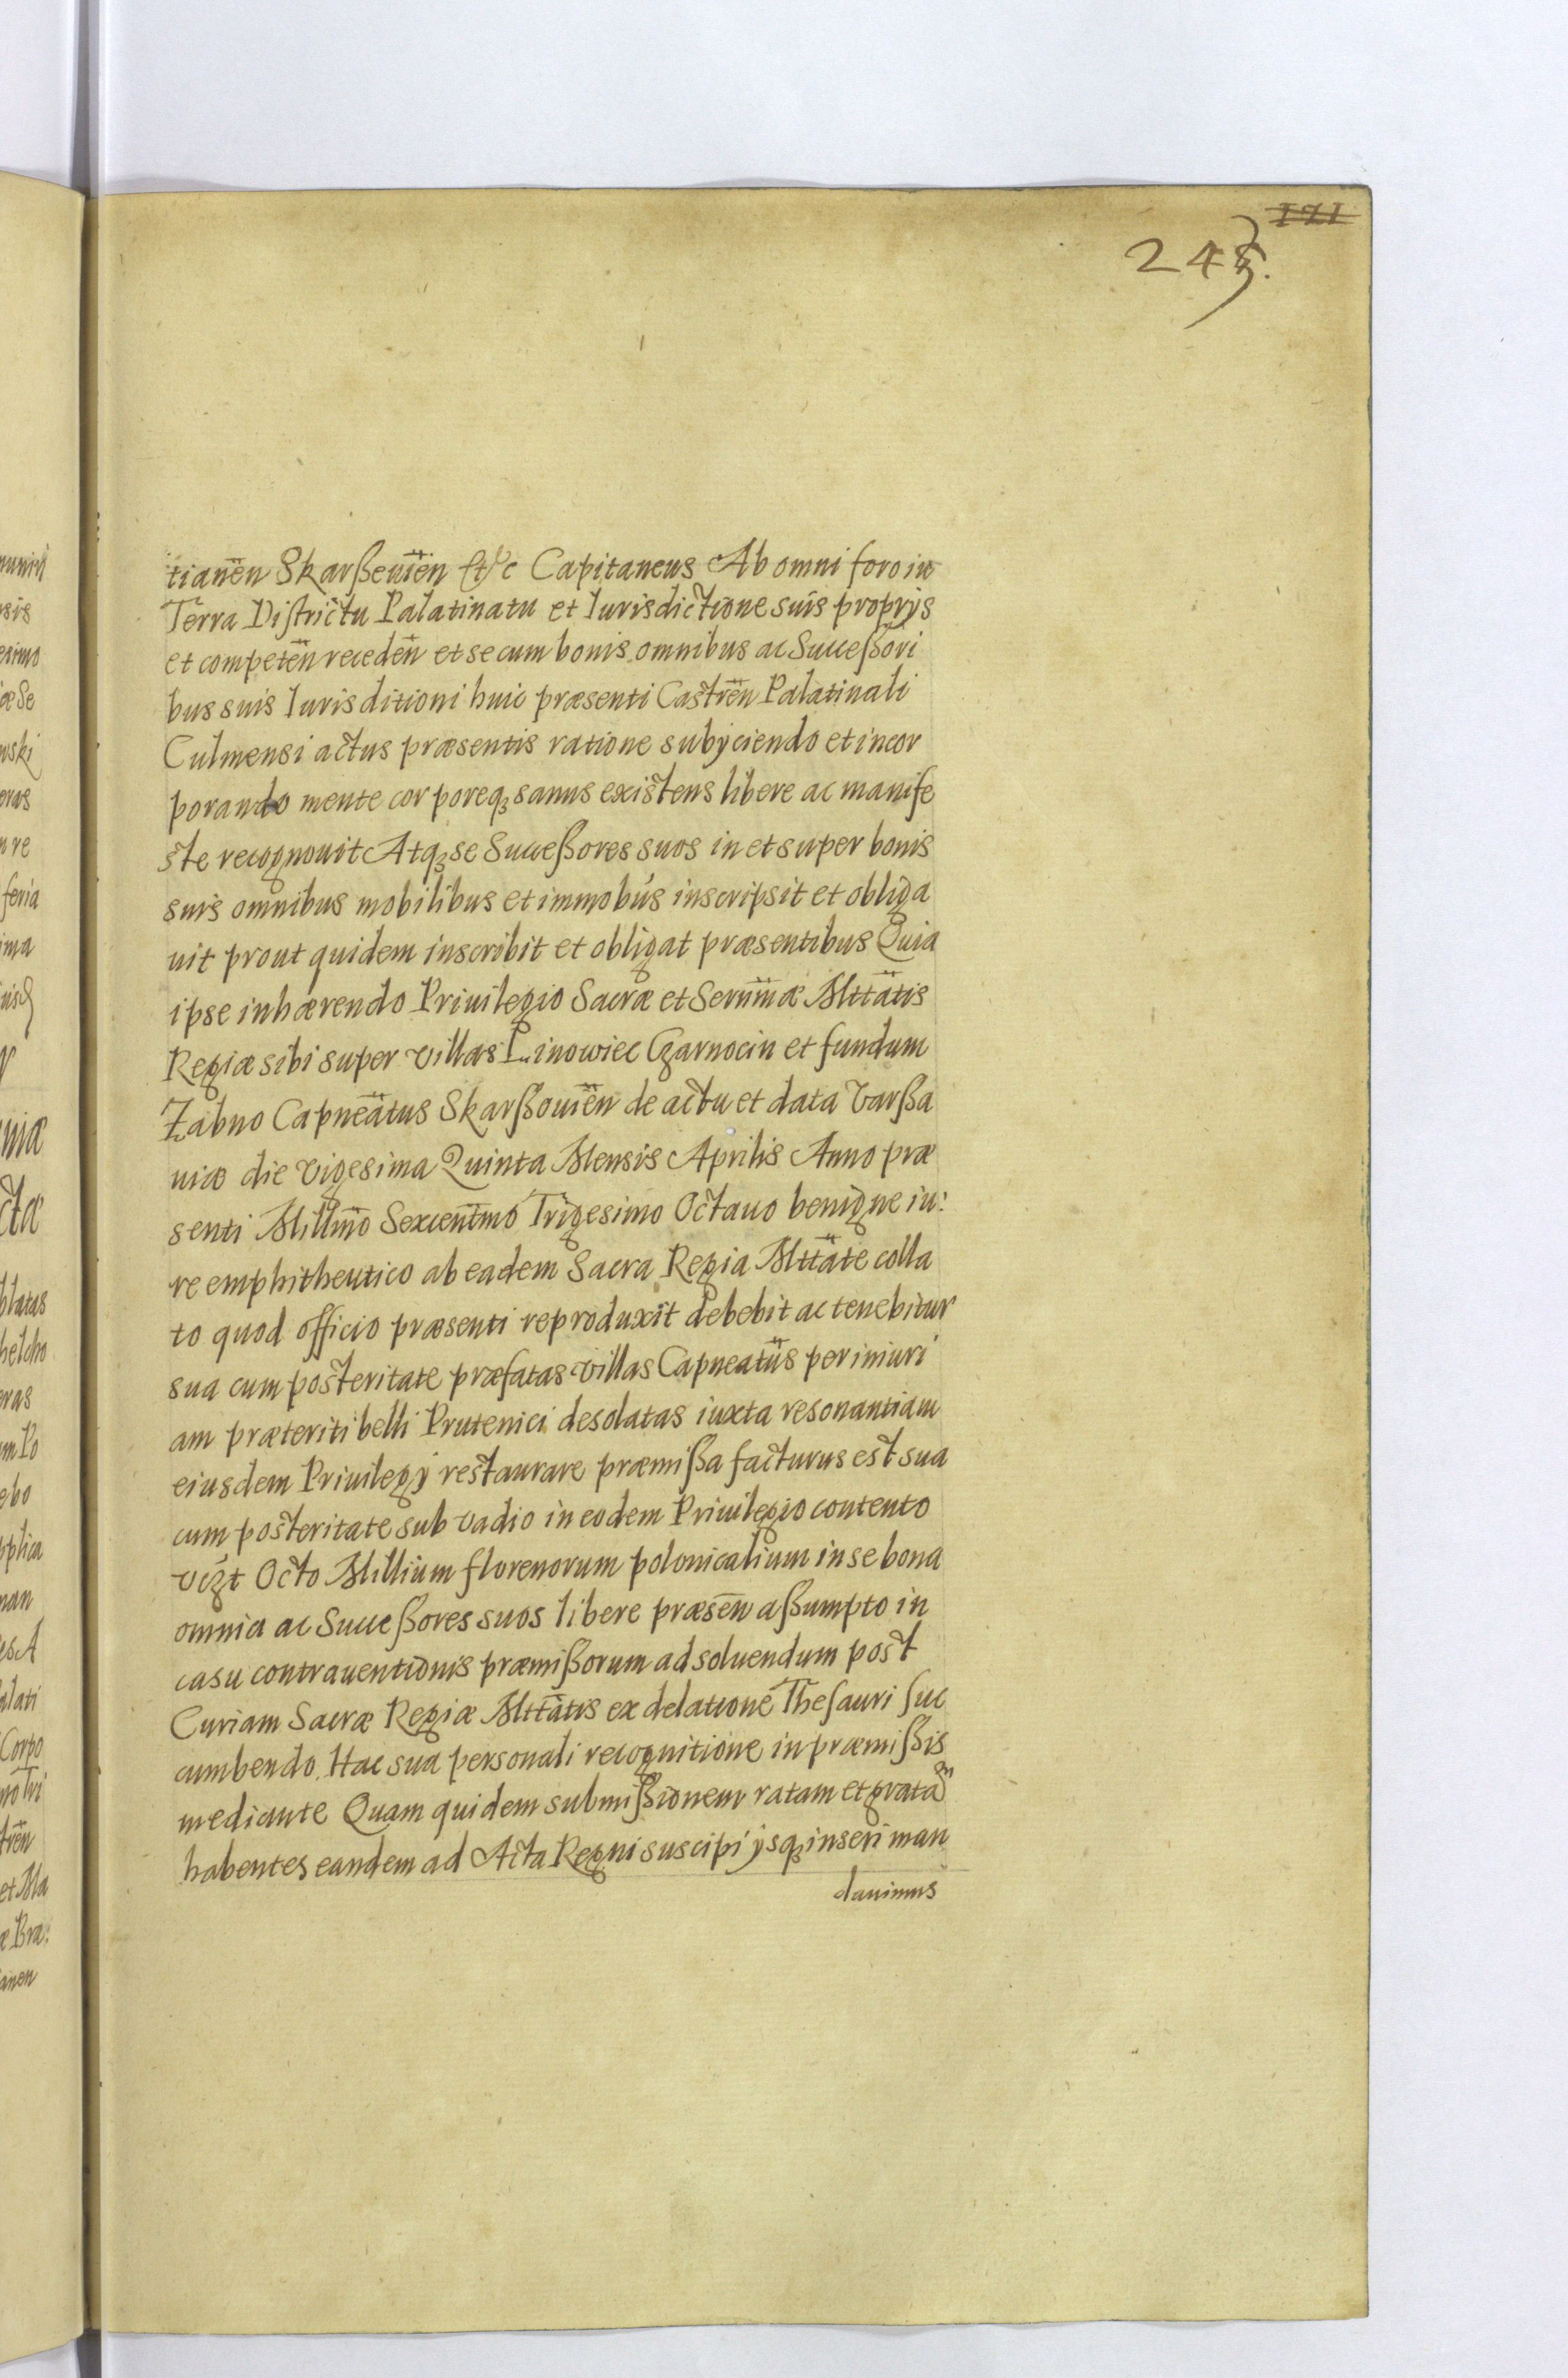 121
243.
tianen̄ Skarßeuien̄ Etc Capitaneus Ab omni foro in
Terra Districtu Palatinatu et Iurisdictione suis proprijs
et competen̄ receden̄ et se cum bonis omnibus ac Succeßori
bus suis Iurisditioni huic præsenti Castren̄ Palatinali
Culmensi actus præsentis ratione subijciendo et incor
porando mente corporeqꝫ sanus existens libere ac manife
ste recognouit Atqꝫ se Succeßores suos in et super bonis
suis omnibus mobilibus et immobūs inscripsit et obliga
uit prout quidem inscribit et obligat præsentibus Quia
ipse inhærendo Priuilegio Sacræ et Serum̄æ Mttātis
Regiæ sibi super villas Linowiec Czarnocin et fundum
Zabno Capneātus Skarßouien̄ de actu et data Varßa
uiæ die vigesima Quinta Mensis Aprilis Anno præ
senti Millm̄o Sexcentm̄o Trigesimo Octauo benigne iu:
re emphitheutico ab eadem Sacra Regia Mttāte colla
to quod officio præsenti reproduxit debebit ac tenebitur
sua cum posteritate præfatas villas Capneatūs per iniuri
am præteriti belli Prutenici desolatas iuxta resonantiam
eiusdem Priuilegij restaurare præmißa facturus est sua
cum posteritate sub vadio in eodem Priuilegio contento
vczt Octo Millium florenorum polonicalium in se bona
omnia ac Succeßores suos libere præsen̄ aßumpto in
casu contrauentionis præmißorum ad soluendum post
Curiam Sacræ Regiæ Mttātis ex delatione Thesauri suc
cumbendo. Hac sua personali recognitione in præmißis
mediante Quam quidem submißionem ratam et gratam
habentes eandem ad Acta Regni suscipi ijsqꝫ inseri man
dauimus